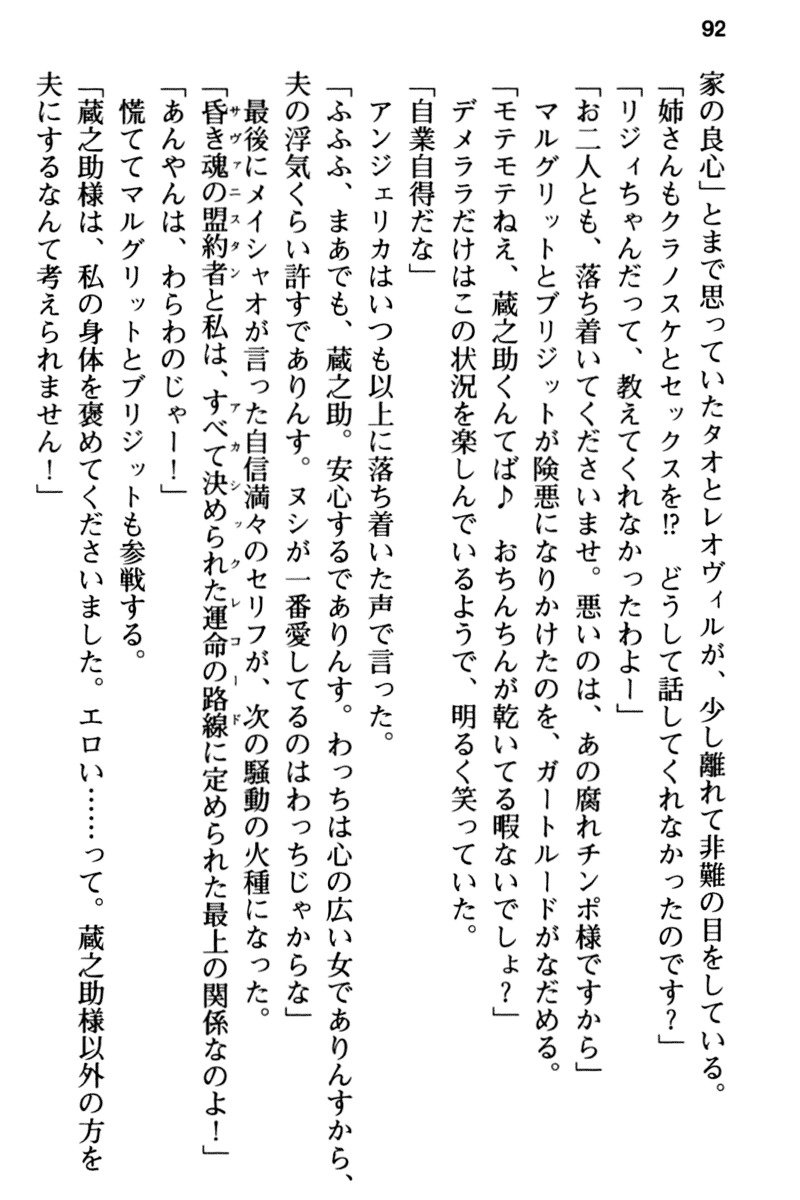 92
家の良心」とまで思っていたタオとレオヴィルが、少し離れて非難の目をしている。
「姉さんもクラノスケとセックスを!? どうして話してくれなかったのです?」
「リジィちゃんだって、教えてくれなかったわよー」
「お二人とも、落ち着いてくださいませ。悪いのは、あの腐れチンポ様ですから」
マルグリットとブリジットが険悪になりかけたのを、ガートルードがなだめる。
「モテモテねえ、蔵之助くんてば♪ おちんちんが乾いてる暇ないでしょ?」
デメララだけはこの状況を楽しんでいるようで、明るく笑っていた。
「自業自得だな」
アンジェリカはいつも以上に落ち着いた声で言った。
「ふふふ、まあでも、蔵之助。安心するでありんす。わっちは心の広い女でありんすから、
夫の浮気くらい許すでありんす。ヌシが一番愛してるのはわっちじゃからな」
最後にメイシャオが言った自信満々のセリフが、次の騒動の火種になった。
「昏き魂の盟約者と私は、すべて決められた運命の路線に定められた最上の関係なのよ!」
サヴァニスタン
アカシックレコード
「あんやんは、わらわのじゃー!」
慌ててマルグリットとブリジットも参戦する。
「蔵之助様は、私の身体を褒めてくださいました。エロい……って。蔵之助様以外の方を
夫にするなんて考えられません!」